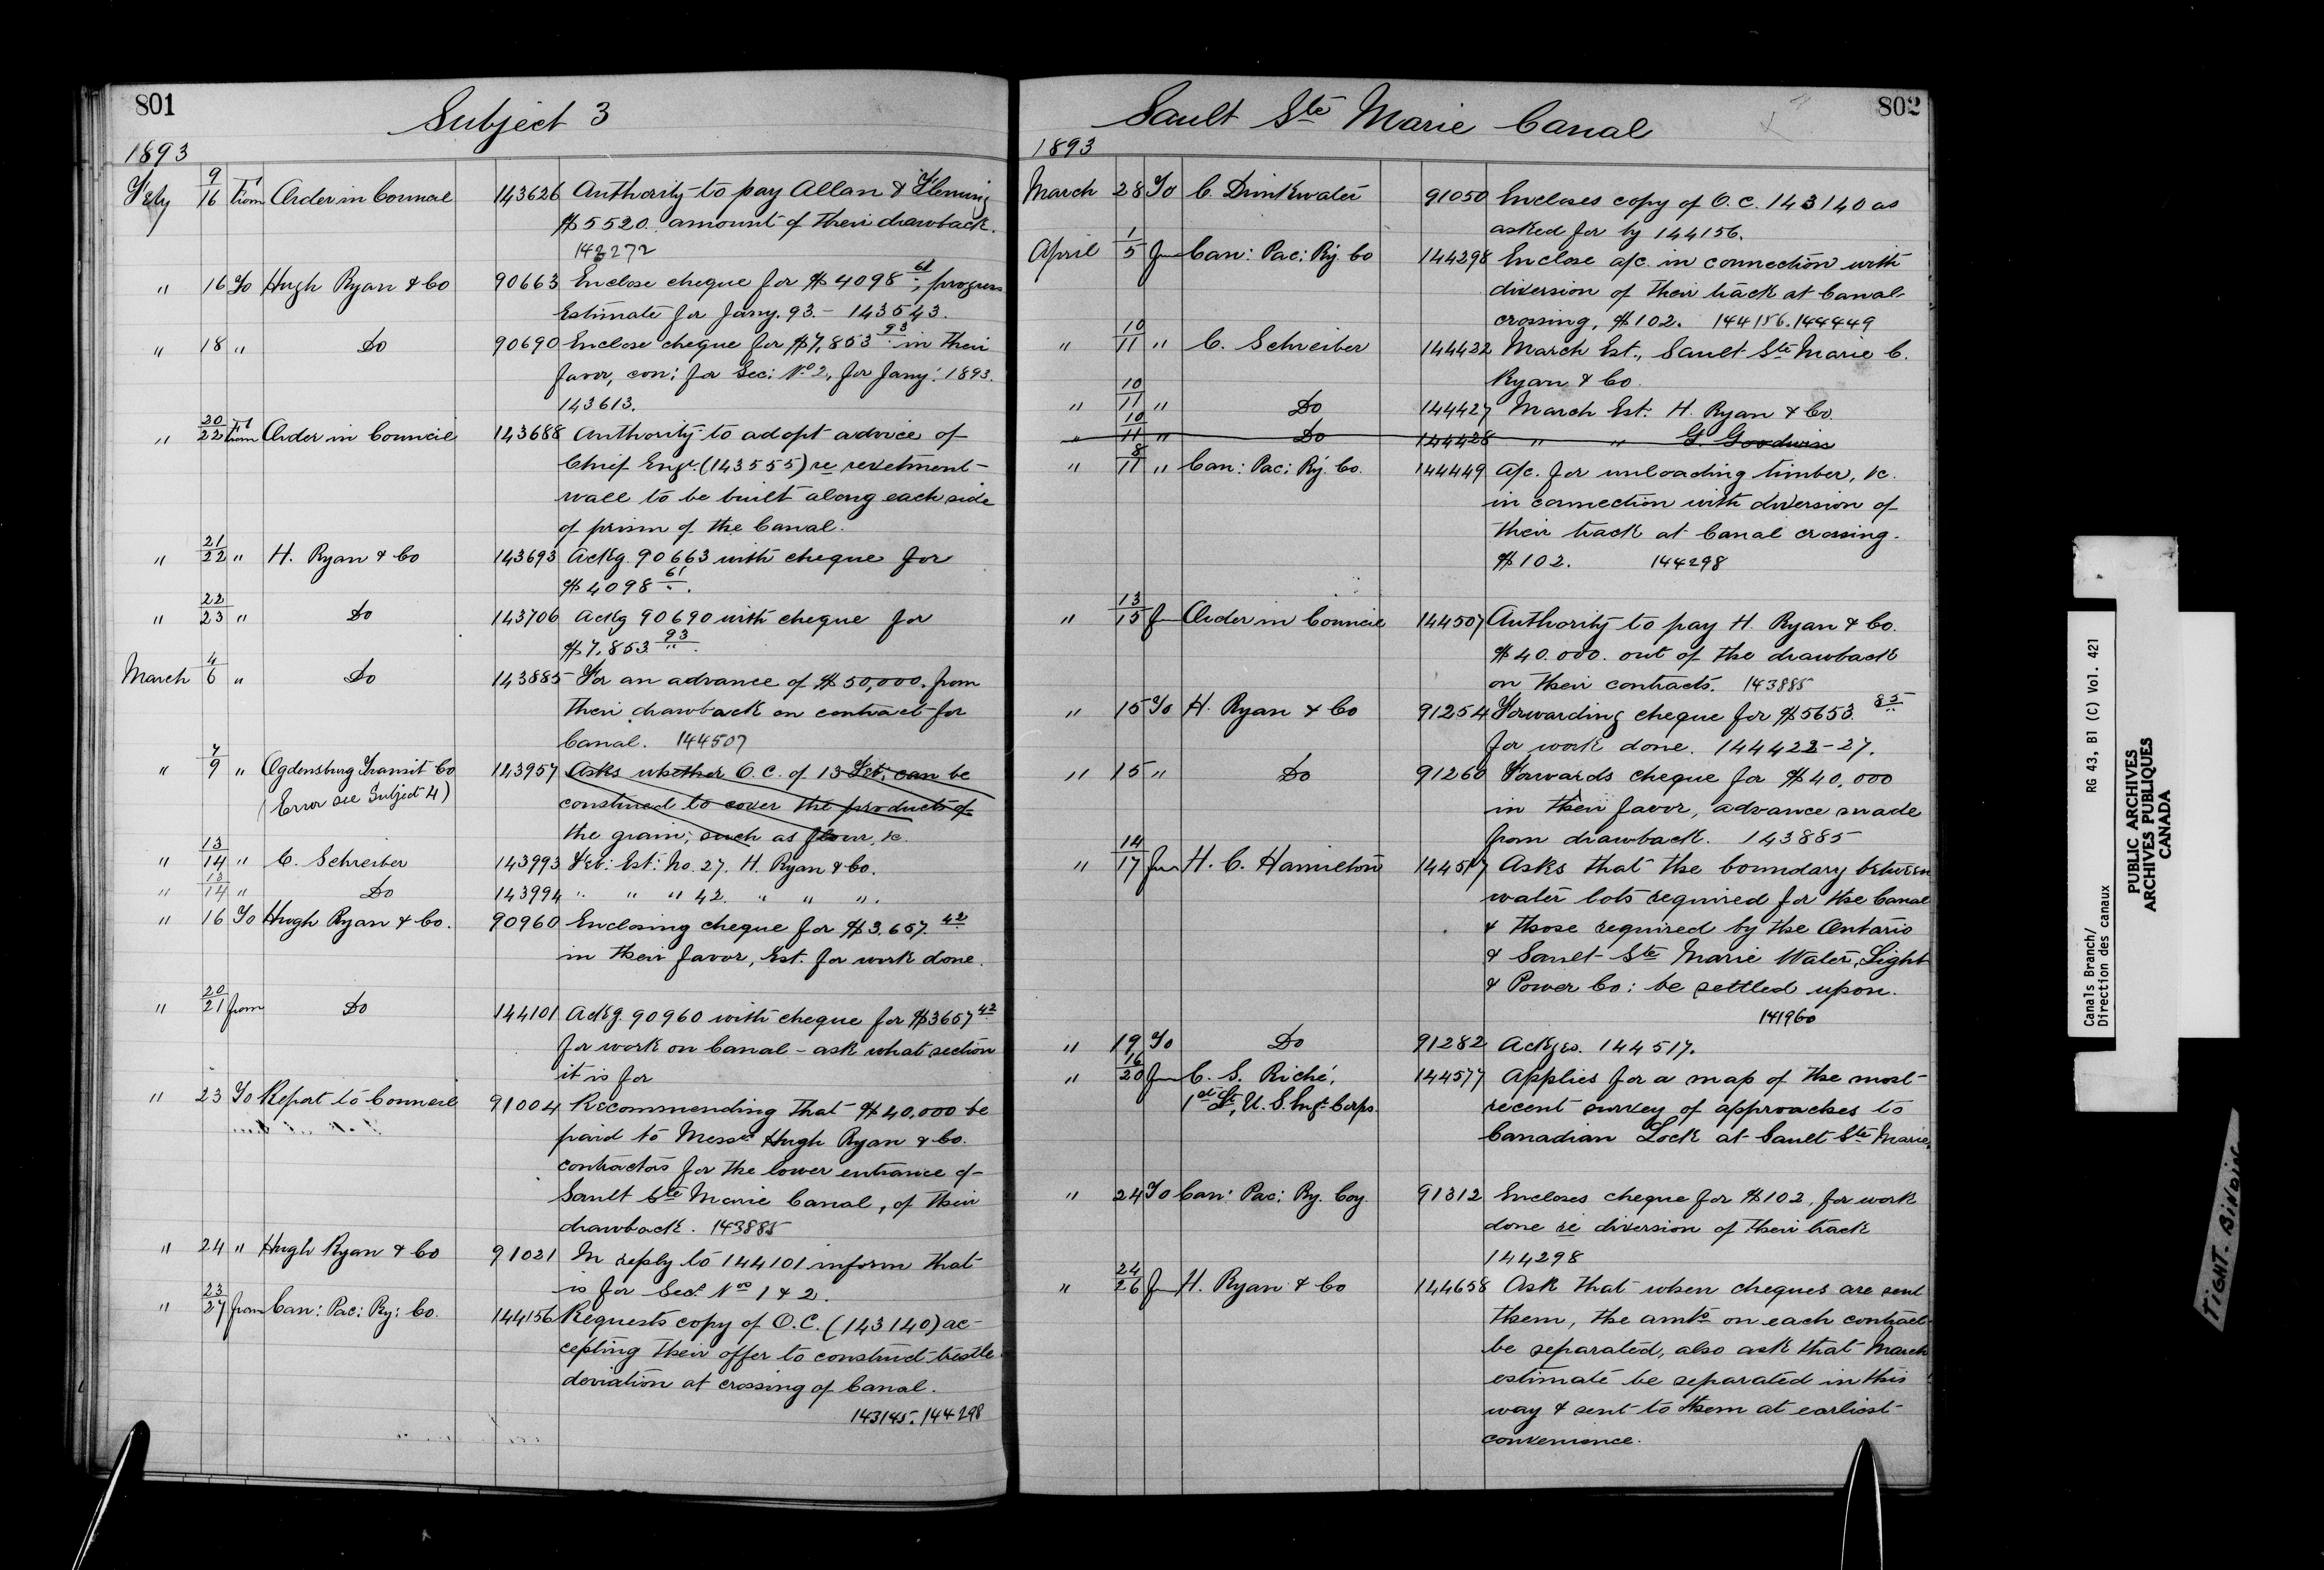 801
Subject 3
1893
Feby 9/16 From Order in Council 143626 Authority to pay Allan & Fleming
$5520. amount of their drawback.
142272
" 16 To Hugh Ryan & Co 90663 Enclose cheque for $4098 61, progress
Estimate for Jany. 93. - 143543.
" 18 " Do 90690 Enclose cheque for $7,853 93 in their
favor, con: for Sec: No 2, for Jany: 1893.
143613.
" 20/22 From Order in Council 143688 Authority to adopt advice of
Chief Engr. (143555) re revetment
wall to be built along each side
of prism of the Canal.
" 21/22 " H. Ryan & Co 143693 Ackg. 90663 with cheque for
$4098 61.
" 22/23 " Do 143706 Ackg 90690 with cheque for
$7,853 93.
March 4/6 " Do 143885 For an advance of $50,000. from
their drawback on contract for
Canal. 144507
" 7/9 " Ogdensburg Transit Co 143957 Asks whether O.C. of 13 Feb: can be
(Error see Subject 4) construed to cover the products of
the grain; such as flour, &c.
" 13/14 " C. Schreiber 143993 Feb: Est: No. 27. H. Ryan & Co.
" 13/14 " Do 143994 " " " 42. " " ".
" 16 To Hugh Ryan & Co. 90960 Enclosing cheque for $3,657. 42
in their favor, Est. for work done.
" 20/21 from Do 144101 Ackg. 90960 with cheque for $3657 42
for work on Canal - ask what section
it is for
" 23 To Report to Council 91004 Recommending that $40,000 be
paid to Messrs Hugh Ryan & Co.
contractors for the lower entrance of
Sault Ste Marie Canal, of their
drawback. 143885
" 24 " Hugh Ryan & Co 91021 In reply to 144101 inform that
is for Secs Nos 1 & 2.
" 23/27 from Can: Pac: Ry: Co. 144156 Requests copy of O.C. (143140) ac-
cepting their offer to construct trestle
deviation at crossing of Canal.
143145. 144298
802
Sault Ste Marie Canal
1893
March 28 To C. Drinkwater 91050 Encloses copy of O.C. 143140 as
asked for by 144156.
April 1/5 fm Can: Pac: Ry. Co 144298 Enclose a/c. in connection with
diversion of their track at Canal
crossing, $102. 144156. 144449
" 10/11 " C. Schreiber 144422 March Est., Sault Ste Marie C.
Ryan & Co.
" 10/11 " Do 144427 March Est: H. Ryan & Co.
" 10/11 " Do 144428 " " G. Goodwin
" 8/11 " Can: Pac: Ry. Co. 144449 A/c. for unloading timber, &c.
in connection with diversion of
their track at Canal crossing.
$102. 144298
" 13/15 fm Order in Council 144507 Authority to pay H. Ryan & Co.
$40.000. out of the drawback
on their contracts. 143885
" 15 To H. Ryan & Co 91254 Forwarding cheque for $5653. 85
for work done. 144422-27.
" 15 " Do 91260 Forwards cheque for $40,000
in their favor, advance made
from drawback. 143885
" 14/17 fm H. C. Hamilton 144517 Asks that the boundary between
water lots required for the Canal
& those required by the Ontario
& Sault Ste Marie Water, Light
& Power Co: be settled upon.
141960
" 19 To Do 91282 Ackges. 144517.
" 16/20 fm C. S. Riché, 144577 Applies for a map of the most
1st Lt, U.S. Engr Corps. recent survey of approaches to
Canadian Lock at Sault Ste Marie.
" 24 To Can: Pac: Ry. Coy. 91312 Encloses cheque for $102, for work
done re diversion of their track
144298
" 24/26 fm H. Ryan & Co 144658 Ask that when cheques are sent
them, the amts on each contract
be separated, also ask that March
estimate be separated in this
way & sent to them at earliest
convenience.
Canals Branch/ RG 43, B1 (C) Vol. 421
Direction des canaux
PUBLIC ARCHIVES
ARCHIVES PUBLIQUES
CANADA
TIGHT BINDING